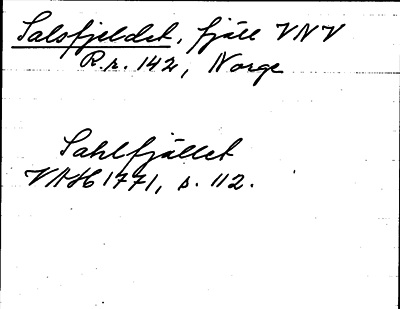 Salsfjeldet, fjäll VNV
R.r. 142, Norge
Sahlfjället
VAH 1771, s. 112.